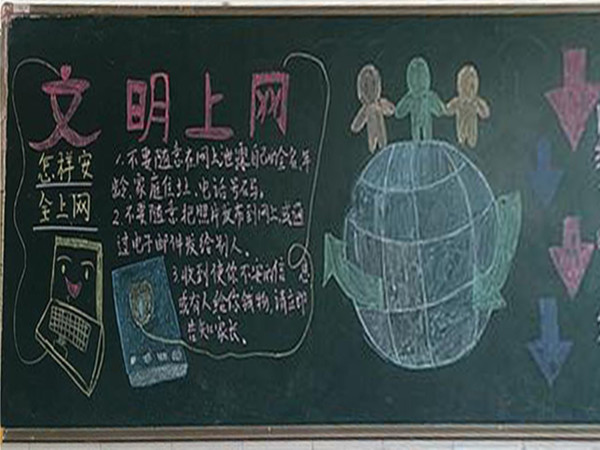 文明上网
怎样安
全上网
1.不要随意在网上泄露自己的全名、年
龄、家庭住址、电话号码。
2.不要随意把照片发布到网上或通
过电子邮件发给别人。
3.收到使你不安的信息
或有人给你钱物,请立即
告知家长。